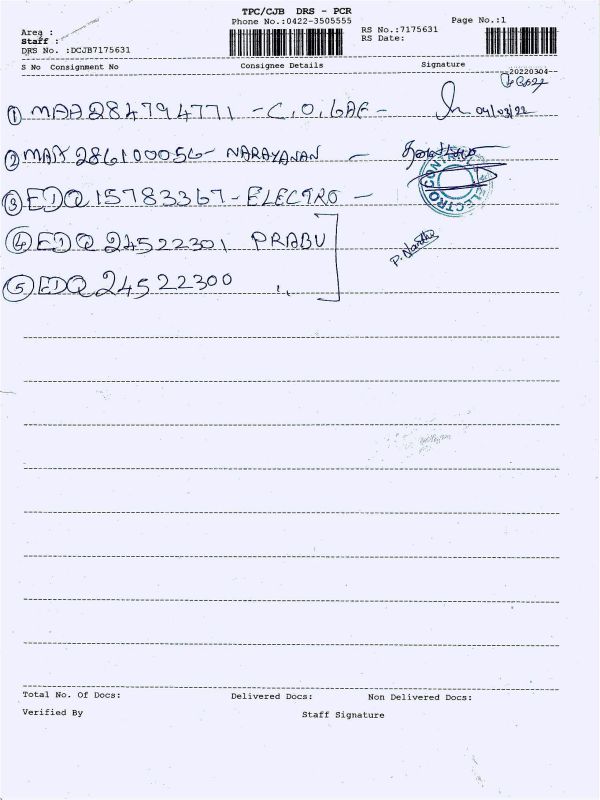 TPC/CJB DRS - PCR
Phone No.:0422-3505555
Page No.:1
Area :
Staff :
DRS No. :DCJB7175631
RS No.:7175631
RS Date:
S No Consignment No Consignee Details Signature
20220304
① MAA284794771 - C.O.
04/03/22
② 286100056 - NARAYANAN -
③ EDQ15783367 - ELECTRO -
ELECTRO CONTROL
④ EDQ 24522301 PRABU
⑤ EDQ 24522300 ,,
Total No. Of Docs: Delivered Docs: Non Delivered Docs:
Verified By Staff Signature